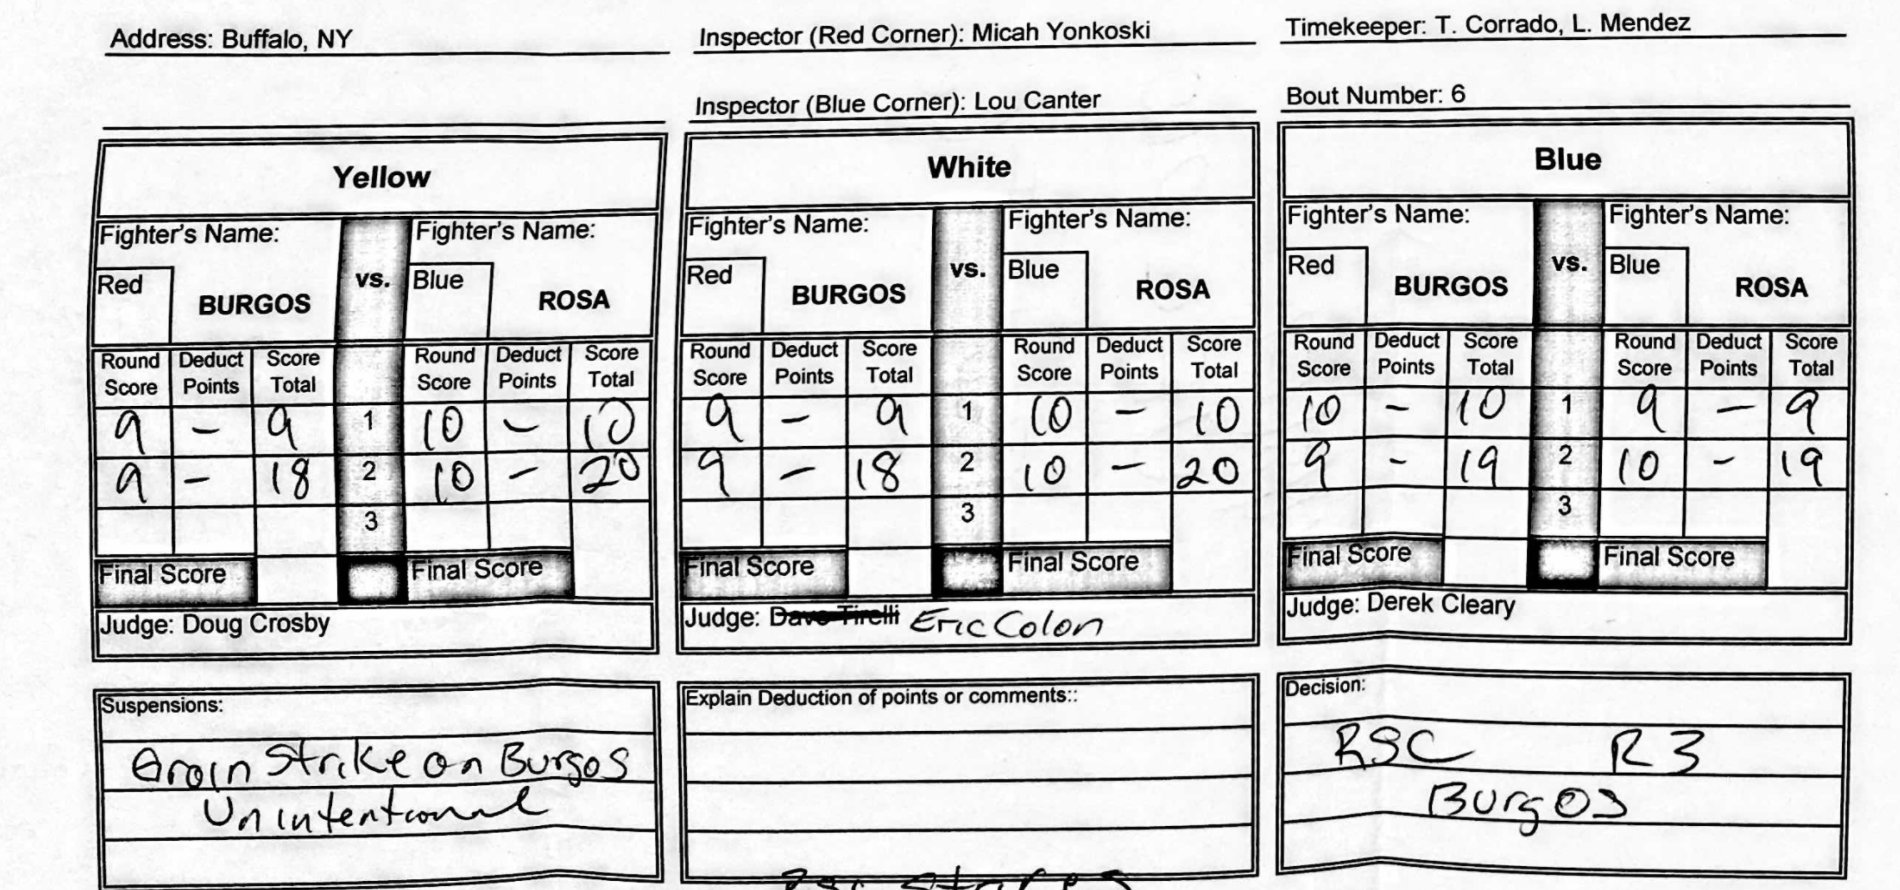 Address: Buffalo, NY
Inspector (Red Corner): Micah Yonkoski
Timekeeper: T. Corrado, L. Mendez
Inspector (Blue Corner): Lou Canter
Bout Number: 6
Yellow
Fighter's Name: vs. Fighter's Name:
Red BURGOS Blue ROSA
Round Score Deduct Points Score Total Round Score Deduct Points Score Total
9 - 9 1 10 - 10
9 - 18 2 10 - 20
3
Final Score Final Score
Judge: Doug Crosby
White
Fighter's Name: vs. Fighter's Name:
Red BURGOS Blue ROSA
Round Score Deduct Points Score Total Round Score Deduct Points Score Total
9 - 9 1 10 - 10
9 - 18 2 10 - 20
3
Final Score Final Score
Judge: Dave Tirelli Eric Colon
Blue
Fighter's Name: vs. Fighter's Name:
Red BURGOS Blue ROSA
Round Score Deduct Points Score Total Round Score Deduct Points Score Total
10 - 10 1 9 - 9
9 - 19 2 10 - 19
3
Final Score Final Score
Judge: Derek Cleary
Suspensions:
Groin Strike on Burgos
Unintentional
Explain Deduction of points or comments::
Decision:
RSC R3
Burgos